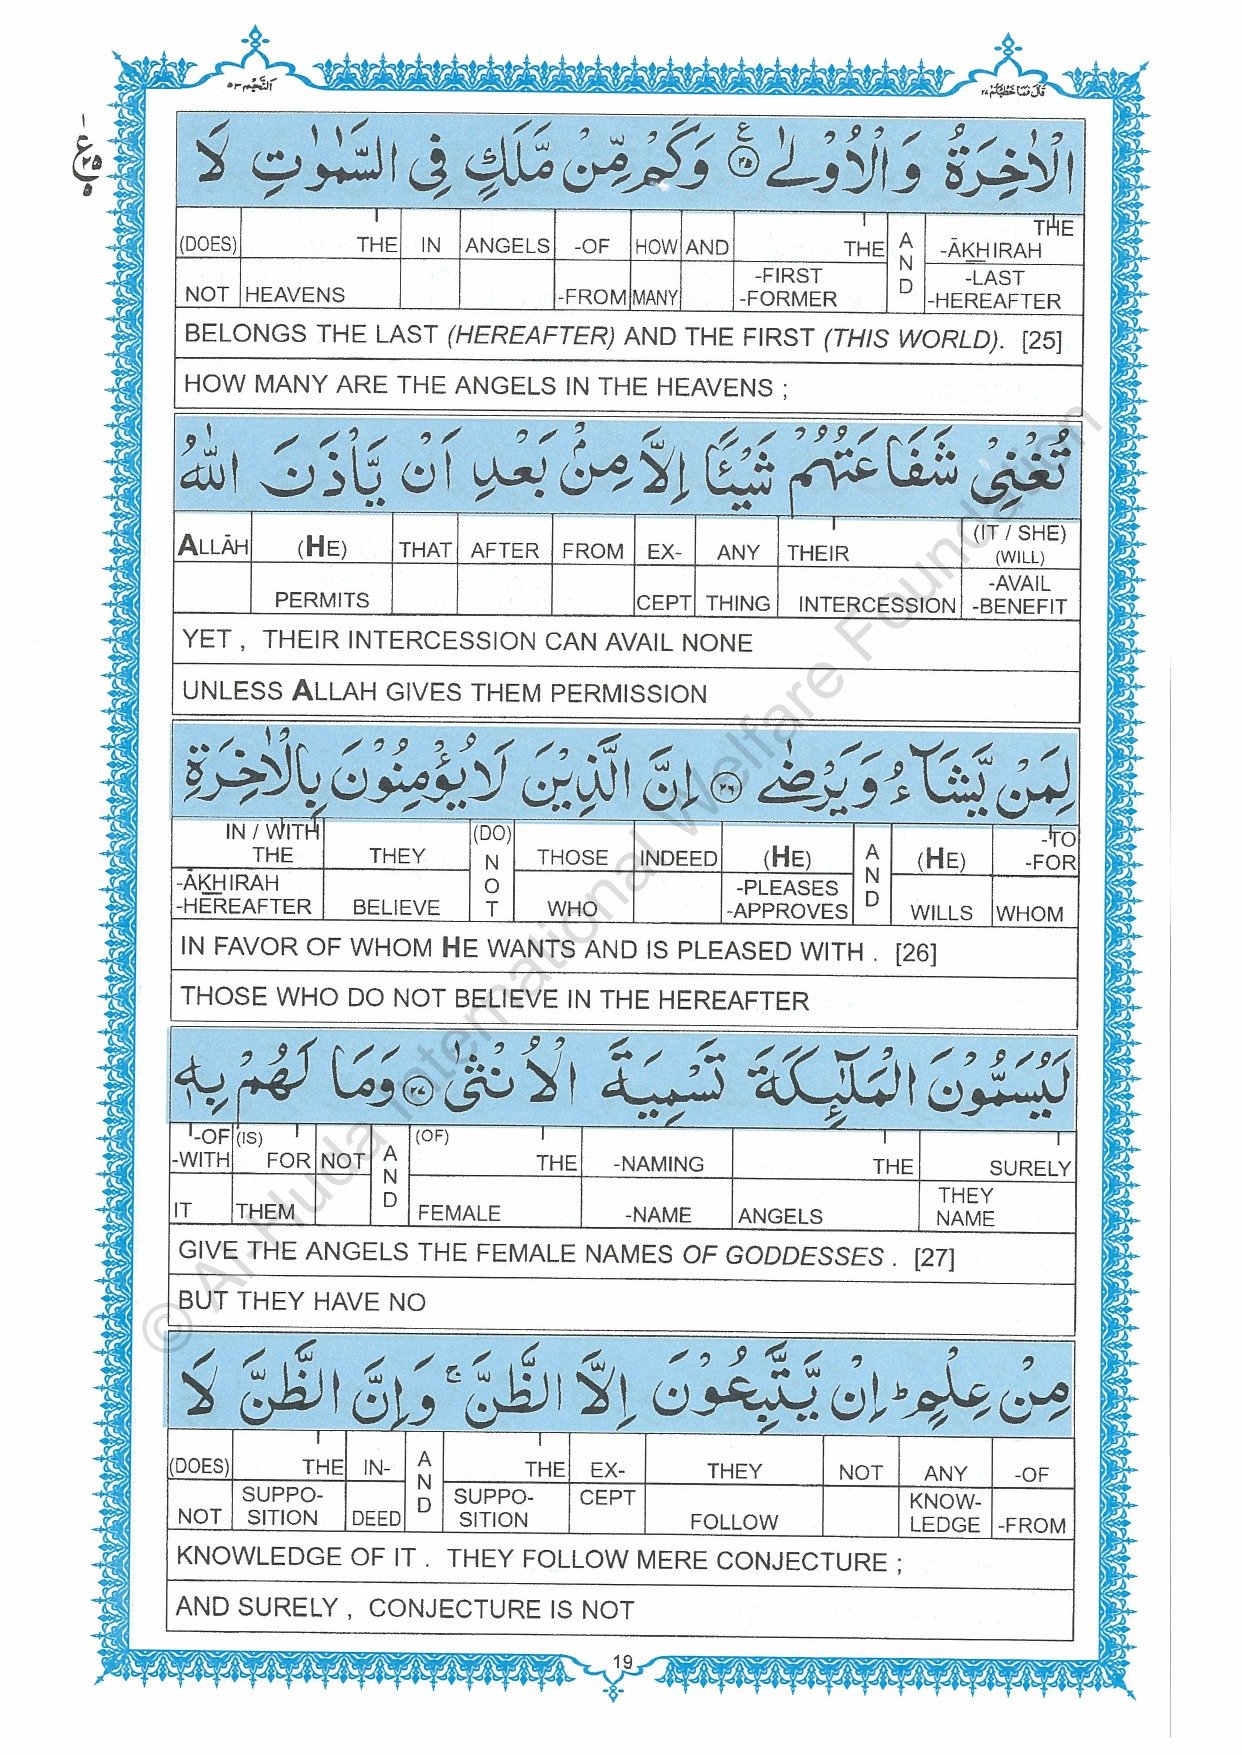 اَلنَّجْم ٥٣
قَالَ فَمَا خَطْبُكُمْ ٢٧
ع ٢٥
الْاٰخِرَةُ وَ الْاُوْلٰى ۝٢٥ ع وَكَمْ مِّنْ مَّلَكٍ فِى السَّمٰوٰتِ لَا
(DOES) THE IN ANGELS -OF HOW AND THE AND THE -ĀKHIRAH
NOT HEAVENS -FROM MANY -FIRST -FORMER -LAST -HEREAFTER
BELONGS THE LAST (HEREAFTER) AND THE FIRST (THIS WORLD). [25]
HOW MANY ARE THE ANGELS IN THE HEAVENS ;
تُغْنِىْ شَفَاعَتُهُمْ شَيْـًٔا اِلَّا مِنْۢ بَعْدِ اَنْ يَّاْذَنَ اللّٰهُ
ALLĀH (HE) THAT AFTER FROM EX- ANY THEIR (IT / SHE) (WILL)
PERMITS CEPT THING INTERCESSION -AVAIL -BENEFIT
YET , THEIR INTERCESSION CAN AVAIL NONE
UNLESS ALLAH GIVES THEM PERMISSION
لِمَنْ يَّشَآءُ وَ يَرْضٰى ۝٢٦ اِنَّ الَّذِيْنَ لَا يُؤْمِنُوْنَ بِالْاٰخِرَةِ
IN / WITH THE THEY (DO) NOT THOSE INDEED (HE) AND (HE) -TO -FOR
-ĀKHIRAH -HEREAFTER BELIEVE WHO -PLEASES -APPROVES WILLS WHOM
IN FAVOR OF WHOM HE WANTS AND IS PLEASED WITH . [26]
THOSE WHO DO NOT BELIEVE IN THE HEREAFTER
لَيُسَمُّوْنَ الْمَلٰٓئِكَةَ تَسْمِيَةَ الْاُنْثٰى ۝٢٧ وَمَا لَهُمْ بِهٖ
-OF -WITH (IS) FOR NOT AND (OF) THE -NAMING THE SURELY
IT THEM FEMALE -NAME ANGELS THEY NAME
GIVE THE ANGELS THE FEMALE NAMES OF GODDESSES . [27]
BUT THEY HAVE NO
مِنْ عِلْمٍ ؕ اِنْ يَّتَّبِعُوْنَ اِلَّا الظَّنَّ ۚ وَاِنَّ الظَّنَّ لَا
(DOES) THE IN- AND THE EX- THEY NOT ANY -OF
NOT SUPPO- SITION DEED SUPPO- SITION CEPT FOLLOW KNOW- LEDGE -FROM
KNOWLEDGE OF IT . THEY FOLLOW MERE CONJECTURE ;
AND SURELY , CONJECTURE IS NOT
19
© Al-Huda International Welfare Foundation